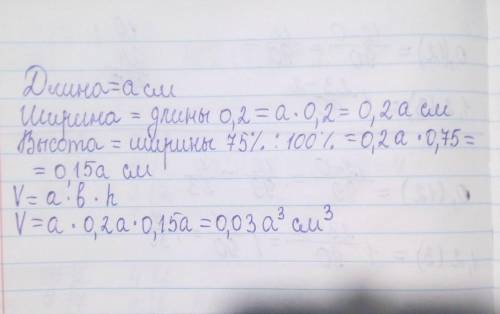 Длина = a см
Ширина = длины 0,2 = a · 0,2 = 0,2a см
Высота = ширины 75% : 100% = 0,2a · 0,75 =
= 0,15a см
V = a · b · h
V = a · 0,2a · 0,15a = 0,03a³ см³